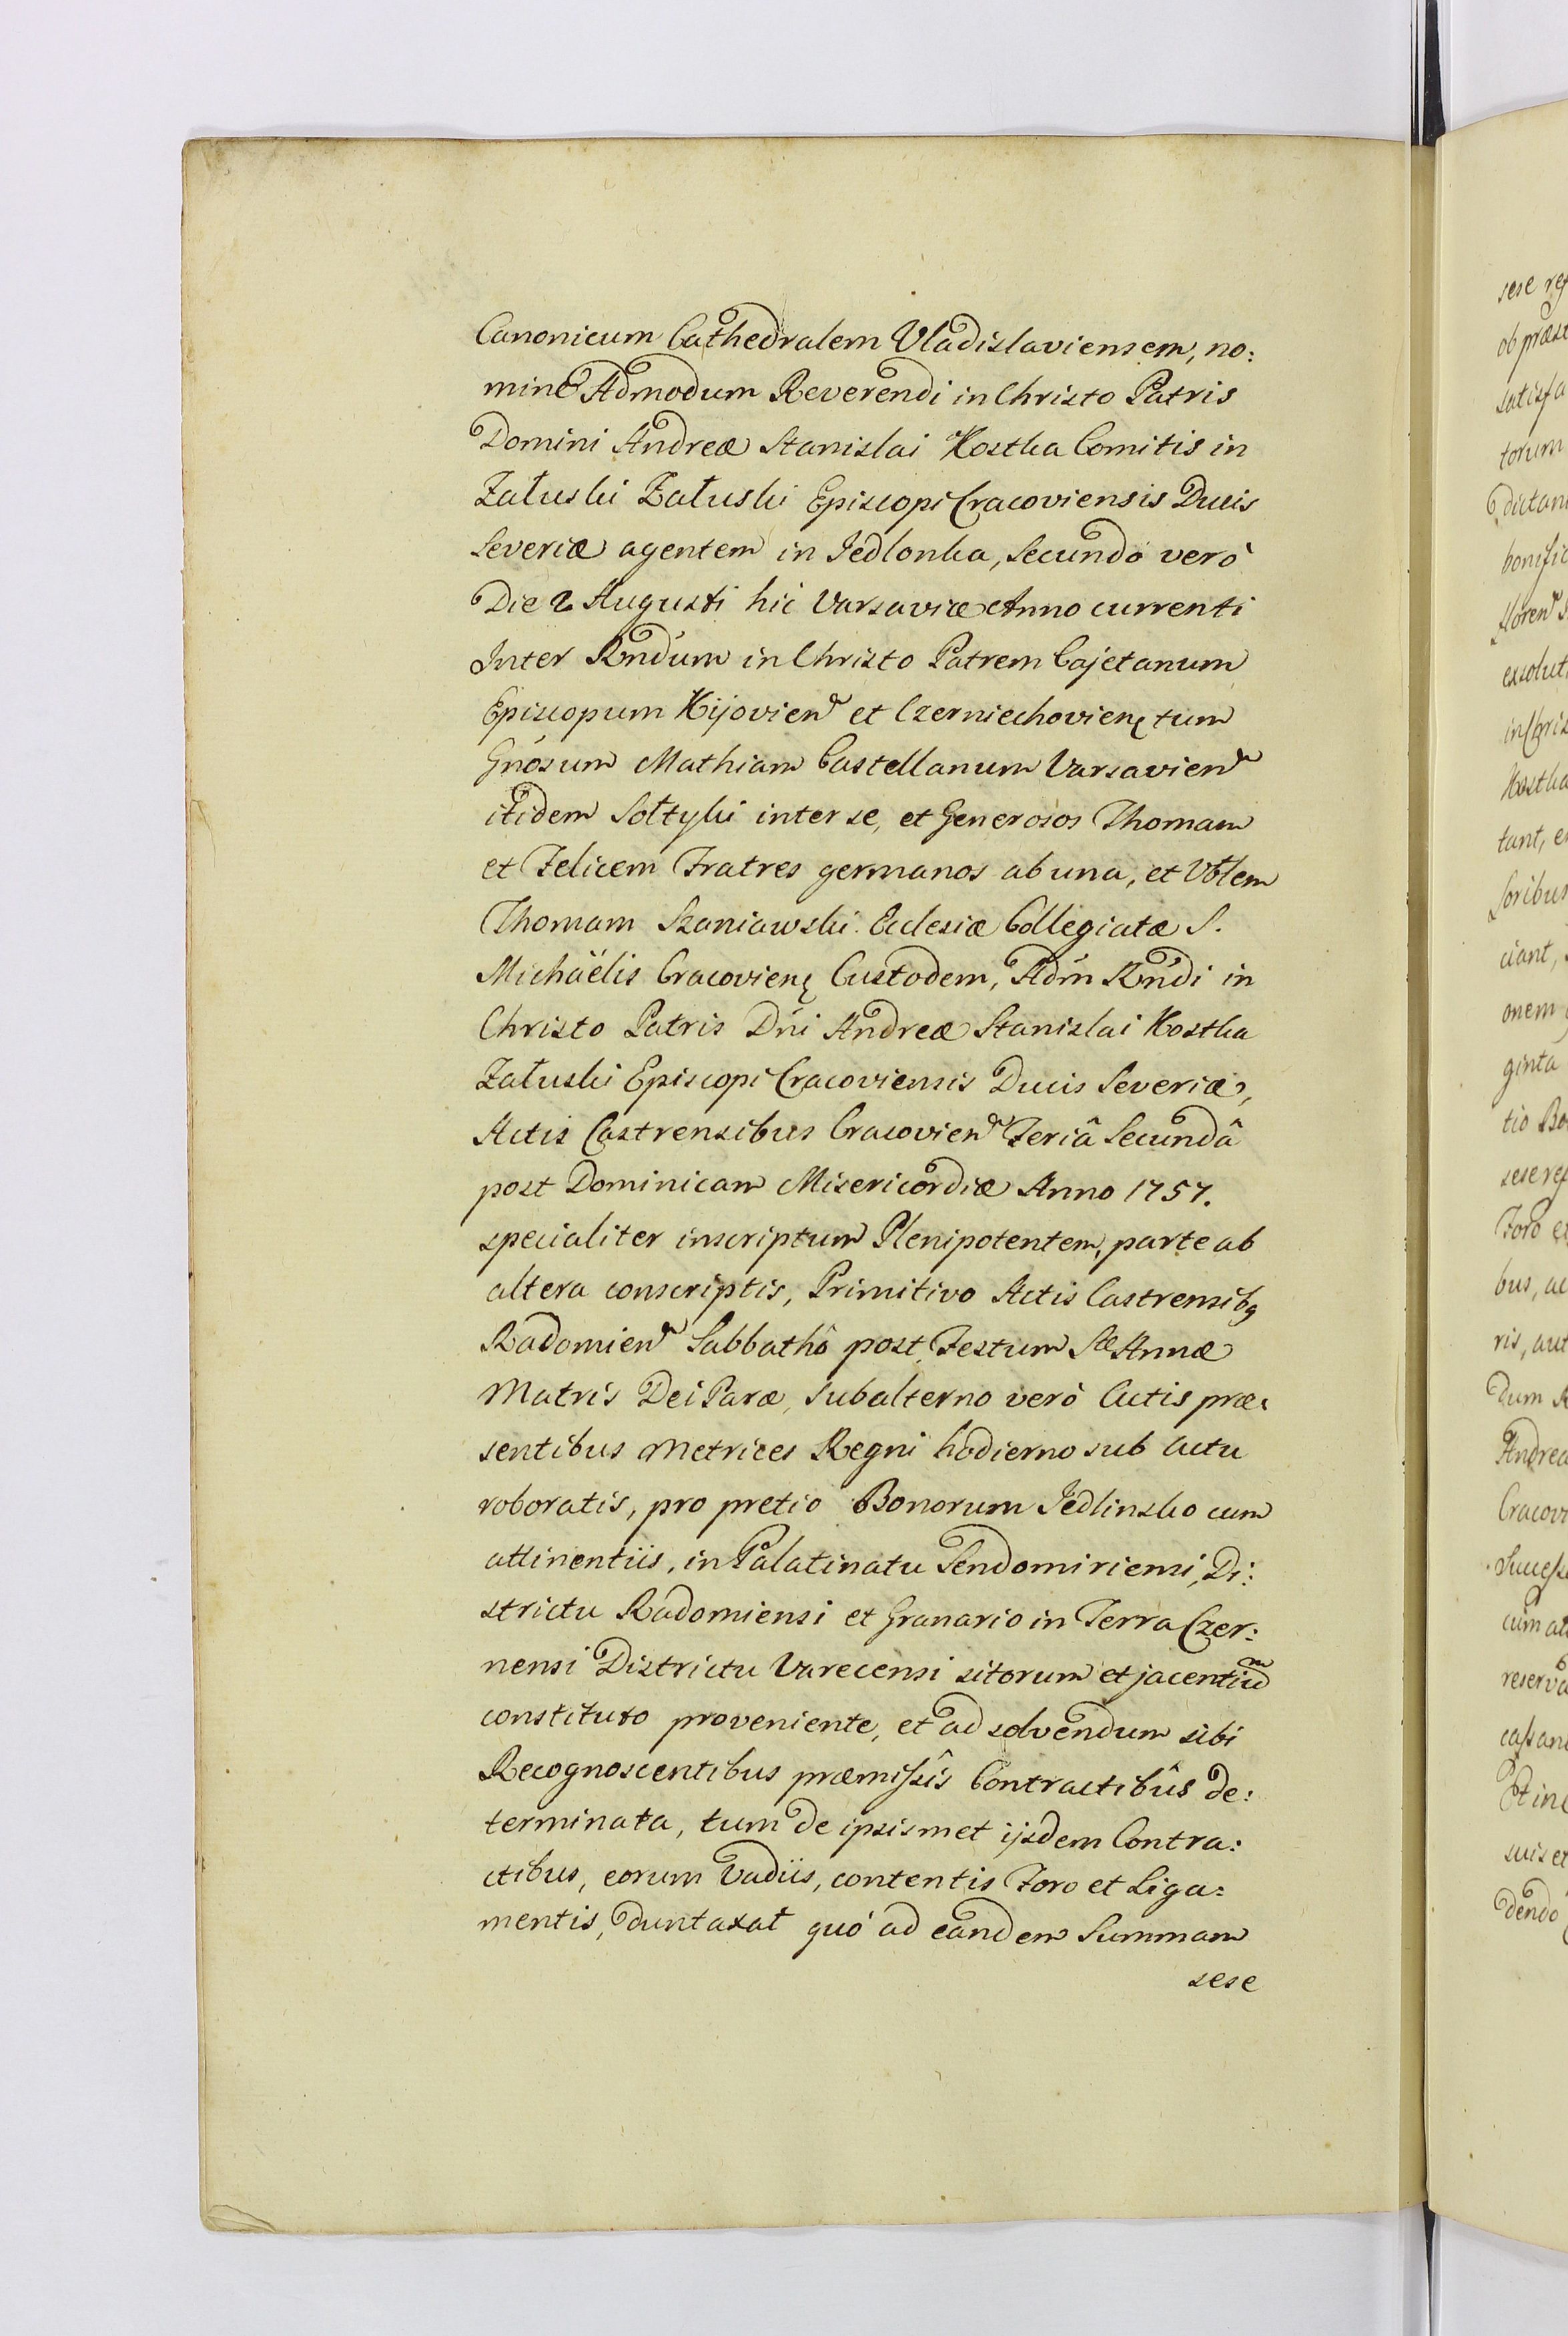 Canonicum Cathedralem Vladislaviensem, no:
mine Admodum Reverendi in Christo Patris
Domini Andreæ Stanislai Kostka Comitis in
Załuski Załuski Episcopi Cracoviensis Ducis
Severiæ agentem in Jedlonka, Secundo verò
Die 2 Augusti hic Varsaviæ Anno currenti
Inter Rndum in Christo Patrem Cajetanum
Episcopum Kijovien et Czerniechovien tum
Gnosum Mathiam Castellanum Varsavien
itidem Sołtyki inter se, et Generosos Thomam
et Felicem Fratres germanos ab una, et Vblem
Thomam Szaniawski Eclesiæ Collegiatæ S.
Michäelis Cracovien Custodem, Adm Rndi in
Christo Patris Dni Andreæ Stanislai Kostka
Załuski Episcopi Cracoviensis Ducis Severiæ,
Actis Castrensibus Cracovien Feriâ Secundâ
post Dominicam Misericordiæ Anno 1757.
specialiter inscriptum Plenipotentem, parte ab
altera conscriptis, Primitivo Actis Castrensibq
Radomien Sabbathô post Festum Stæ Annæ
Matris Dei Paræ, Subalterno verò Actis præ:
sentibus Metrices Regni hodierno sub Actu
roboratis, pro pretio Bonorum Jedlinsko cum
attinentiis, in Palatinatu Sendomiriensi, Di:
strictu Radomiensi et Granario in Terra Czer:
nensi Districtu Varecensi sitorum et jacentium
constituto proveniente, et ad solvendum sibi
Recognoscentibus præmissîs Contractibûs de:
terminata, tum de ipsismet ijsdem Contra:
ctibus, eorum Vadiis, contentis Foro et Liga:
mentis, duntaxat quò ad eandem Summam
sese
sese
ob præst
satisfa
torum
dictam
bonific
floren
exsolut
in Chris
Kostka
tant, e
soribus
ciant,
onem
ginta
tio Bo
sese ref
Foro e
bus, ac
ris, aut
dum R
Andreæ
Cracovi
Success
cum at
reserva
cassan
Et in
suis et
dendo